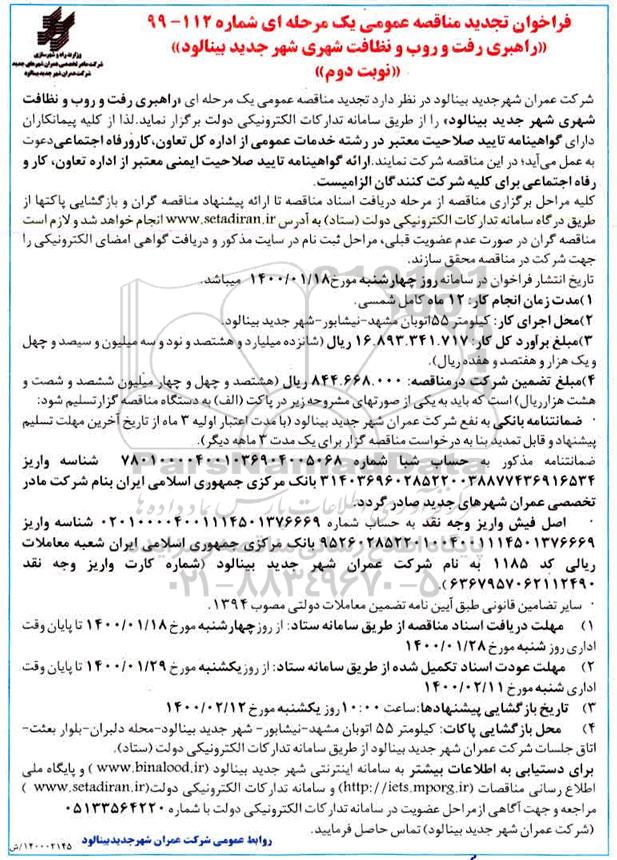 فراخوان تجدید مناقصه عمومی یک مرحله ای شماره ۱۱۲- ۹۹
«راهبری رفت و روب و نظافت شهری شهر جدید بینالود»
«نوبت دوم»
وزارت راه و شهرسازی
شرکت مادر تخصصی عمران شهرهای جدید
شرکت عمران شهر جدید بینالود
شرکت عمران شهرجدید بینالود در نظر دارد تجدید مناقصه عمومی یک مرحله ای «راهبری رفت و روب و نظافت
شهری شهر جدید بینالود» را از طریق سامانه تدارکات الکترونیکی دولت برگزار نماید.لذا از کلیه پیمانکاران
دارای گواهینامه تایید صلاحیت معتبر در رشته خدمات عمومی از اداره کل تعاون،کارورفاه اجتماعی‌دعوت
به عمل می‌آید؛ در این مناقصه شرکت نمایند.ارائه گواهینامه تایید صلاحیت ایمنی معتبر از اداره تعاون، کار و
رفاه اجتماعی برای کلیه شرکت کنندگان الزامیست.
کلیه مراحل برگزاری مناقصه از مرحله دریافت اسناد مناقصه تا ارائه پیشنهاد مناقصه گران و بازگشایی پاکتها از
طریق درگاه سامانه تدارکات الکترونیکی دولت (ستاد) به آدرس www.setadiran.ir انجام خواهد شد و لازم است
مناقصه گران در صورت عدم عضویت قبلی، مراحل ثبت نام در سایت مذکور و دریافت گواهی امضای الکترونیکی را
جهت شرکت در مناقصه محقق سازند.
تاریخ انتشار فراخوان در سامانه روز چهارشنبه مورخ۱۴۰۰/۰۱/۱۸ میباشد.
۱)مدت زمان انجام کار: ۱۲ ماه کامل شمسی.
۲)محل اجرای کار: کیلومتر ۵۵اتوبان مشهد-نیشابور-شهر جدید بینالود.
۳)مبلغ برآورد کل کار: ۱۶.۸۹۳.۳۴۱.۷۱۷ ریال (شانزده میلیارد و هشتصد و نود و سه میلیون و سیصد و چهل
و یک هزار و هفتصد و هفده ریال).
۴)مبلغ تضمین شرکت درمناقصه: ۸۴۴.۶۶۸.۰۰۰ ریال (هشتصد و چهل و چهار میلیون ششصد و شصت و
هشت هزارریال) است که باید به یکی از صورتهای مشروحه زیر در پاکت (الف) به دستگاه مناقصه گزارتسلیم شود:
· ضمانتنامه بانکی به نفع شرکت عمران شهر جدید بینالود (با مدت اعتبار اولیه ۳ ماه از تاریخ آخرین مهلت تسلیم
پیشنهاد و قابل تمدید بنا به درخواست مناقصه گزار برای یک مدت ۳ ماهه دیگر).
ضمانتنامه مذکور به حساب شبا شماره ۷۸۰۱۰۰۰۰۴۰۰۱۰۳۶۹۰۴۰۰۵۰۶۸ شناسه واریز
۳۱۴۰۳۶۹۶۰۲۸۵۲۲۰۰۳۸۸۷۷۴۳۶۹۱۶۵۳۴ بانک مرکزی جمهوری اسلامی ایران بنام شرکت مادر
تخصصی عمران شهرهای جدید صادر گردد.
· اصل فیش واریز وجه نقد به حساب شماره ۰۲۰۱۰۰۰۰۴۰۰۱۱۱۴۵۰۱۳۷۶۶۶۹ شناسه واریز
۹۵۲۶۰۲۸۵۲۲۰۱۰۰۴۰۰۱۱۱۴۵۰۱۳۷۶۶۶۹ بانک مرکزی جمهوری اسلامی ایران شعبه معاملات
ریالی کد ۱۱۸۵ به نام شرکت عمران شهر جدید بینالود (شماره کارت واریز وجه نقد
۶۳۶۷۹۵۷۰۶۲۱۱۲۴۹۰).
· سایر تضامین قانونی طبق آیین نامه تضمین معاملات دولتی مصوب ۱۳۹۴.
۱) مهلت دریافت اسناد مناقصه از طریق سامانه ستاد: از روزچهارشنبه مورخ ۱۴۰۰/۰۱/۱۸ تا پایان وقت
اداری روز شنبه مورخ ۱۴۰۰/۰۱/۲۸
۲) مهلت عودت اسناد تکمیل شده از طریق سامانه ستاد: از روزیکشنبه مورخ ۱۴۰۰/۰۱/۲۹ تا پایان وقت
اداری شنبه مورخ ۱۴۰۰/۰۲/۱۱
۳) تاریخ بازگشایی پیشنهادها:ساعت ۱۰:۰۰روز یکشنبه مورخ ۱۴۰۰/۰۲/۱۲
۴) محل بازگشایی پاکات: کیلومتر ۵۵ اتوبان مشهد-نیشابور- شهر جدید بینالود-محله دلبران-بلوار بعثت-
اتاق جلسات شرکت عمران شهر جدید بینالود از طریق سامانه تدارکات الکترونیکی دولت (ستاد).
برای دستیابی به اطلاعات بیشتر به سامانه اینترنتی شهر جدید بینالود (www.binalood.ir ) و پایگاه ملی
اطلاع رسانی مناقصات (http://iets.mporg.ir) و سامانه تدارکات الکترونیکی دولت(www.setadiran.ir )
مراجعه و جهت آگاهی ازمراحل عضویت در سامانه تدارکات الکترونیکی دولت با شماره ۰۵۱۳۳۵۶۴۲۲۰
(شرکت عمران شهر جدید بینالود) تماس حاصل فرمایید.
روابط عمومی شرکت عمران شهرجدیدبینالود
۱۴۰۰۰۲۱۴۵/ش
ParsNamadData
پایگاه اطلاع رسانی مناقصه و مزایده
۰۲۱-۸۸۳۴۹۶۷۰-۵